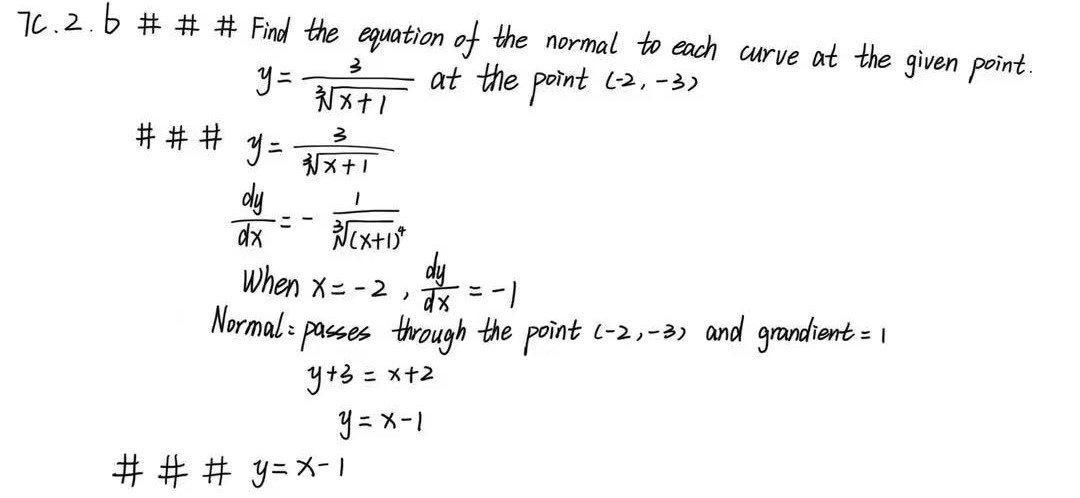 7C.2.b # # # Find the equation of the normal to each curve at the given point.
y = 3/∛(x+1) at the point (-2, -3)
# # # y = 3/∛(x+1)
dy/dx = - 1/∛(x+1)⁴
When x = -2, dy/dx = -1
Normal: passes through the point (-2, -3) and grandient = 1
y+3 = x+2
y = x-1
# # # y = x-1